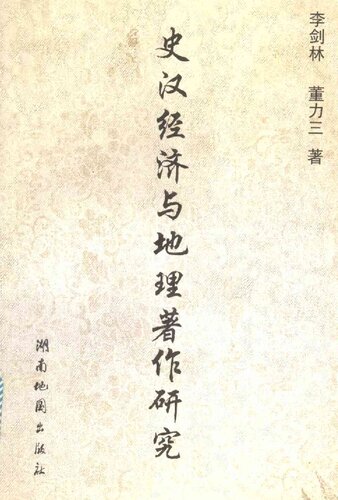 李剑林 董力三 著
史汉经济与地理著作研究
湖南地图出版社